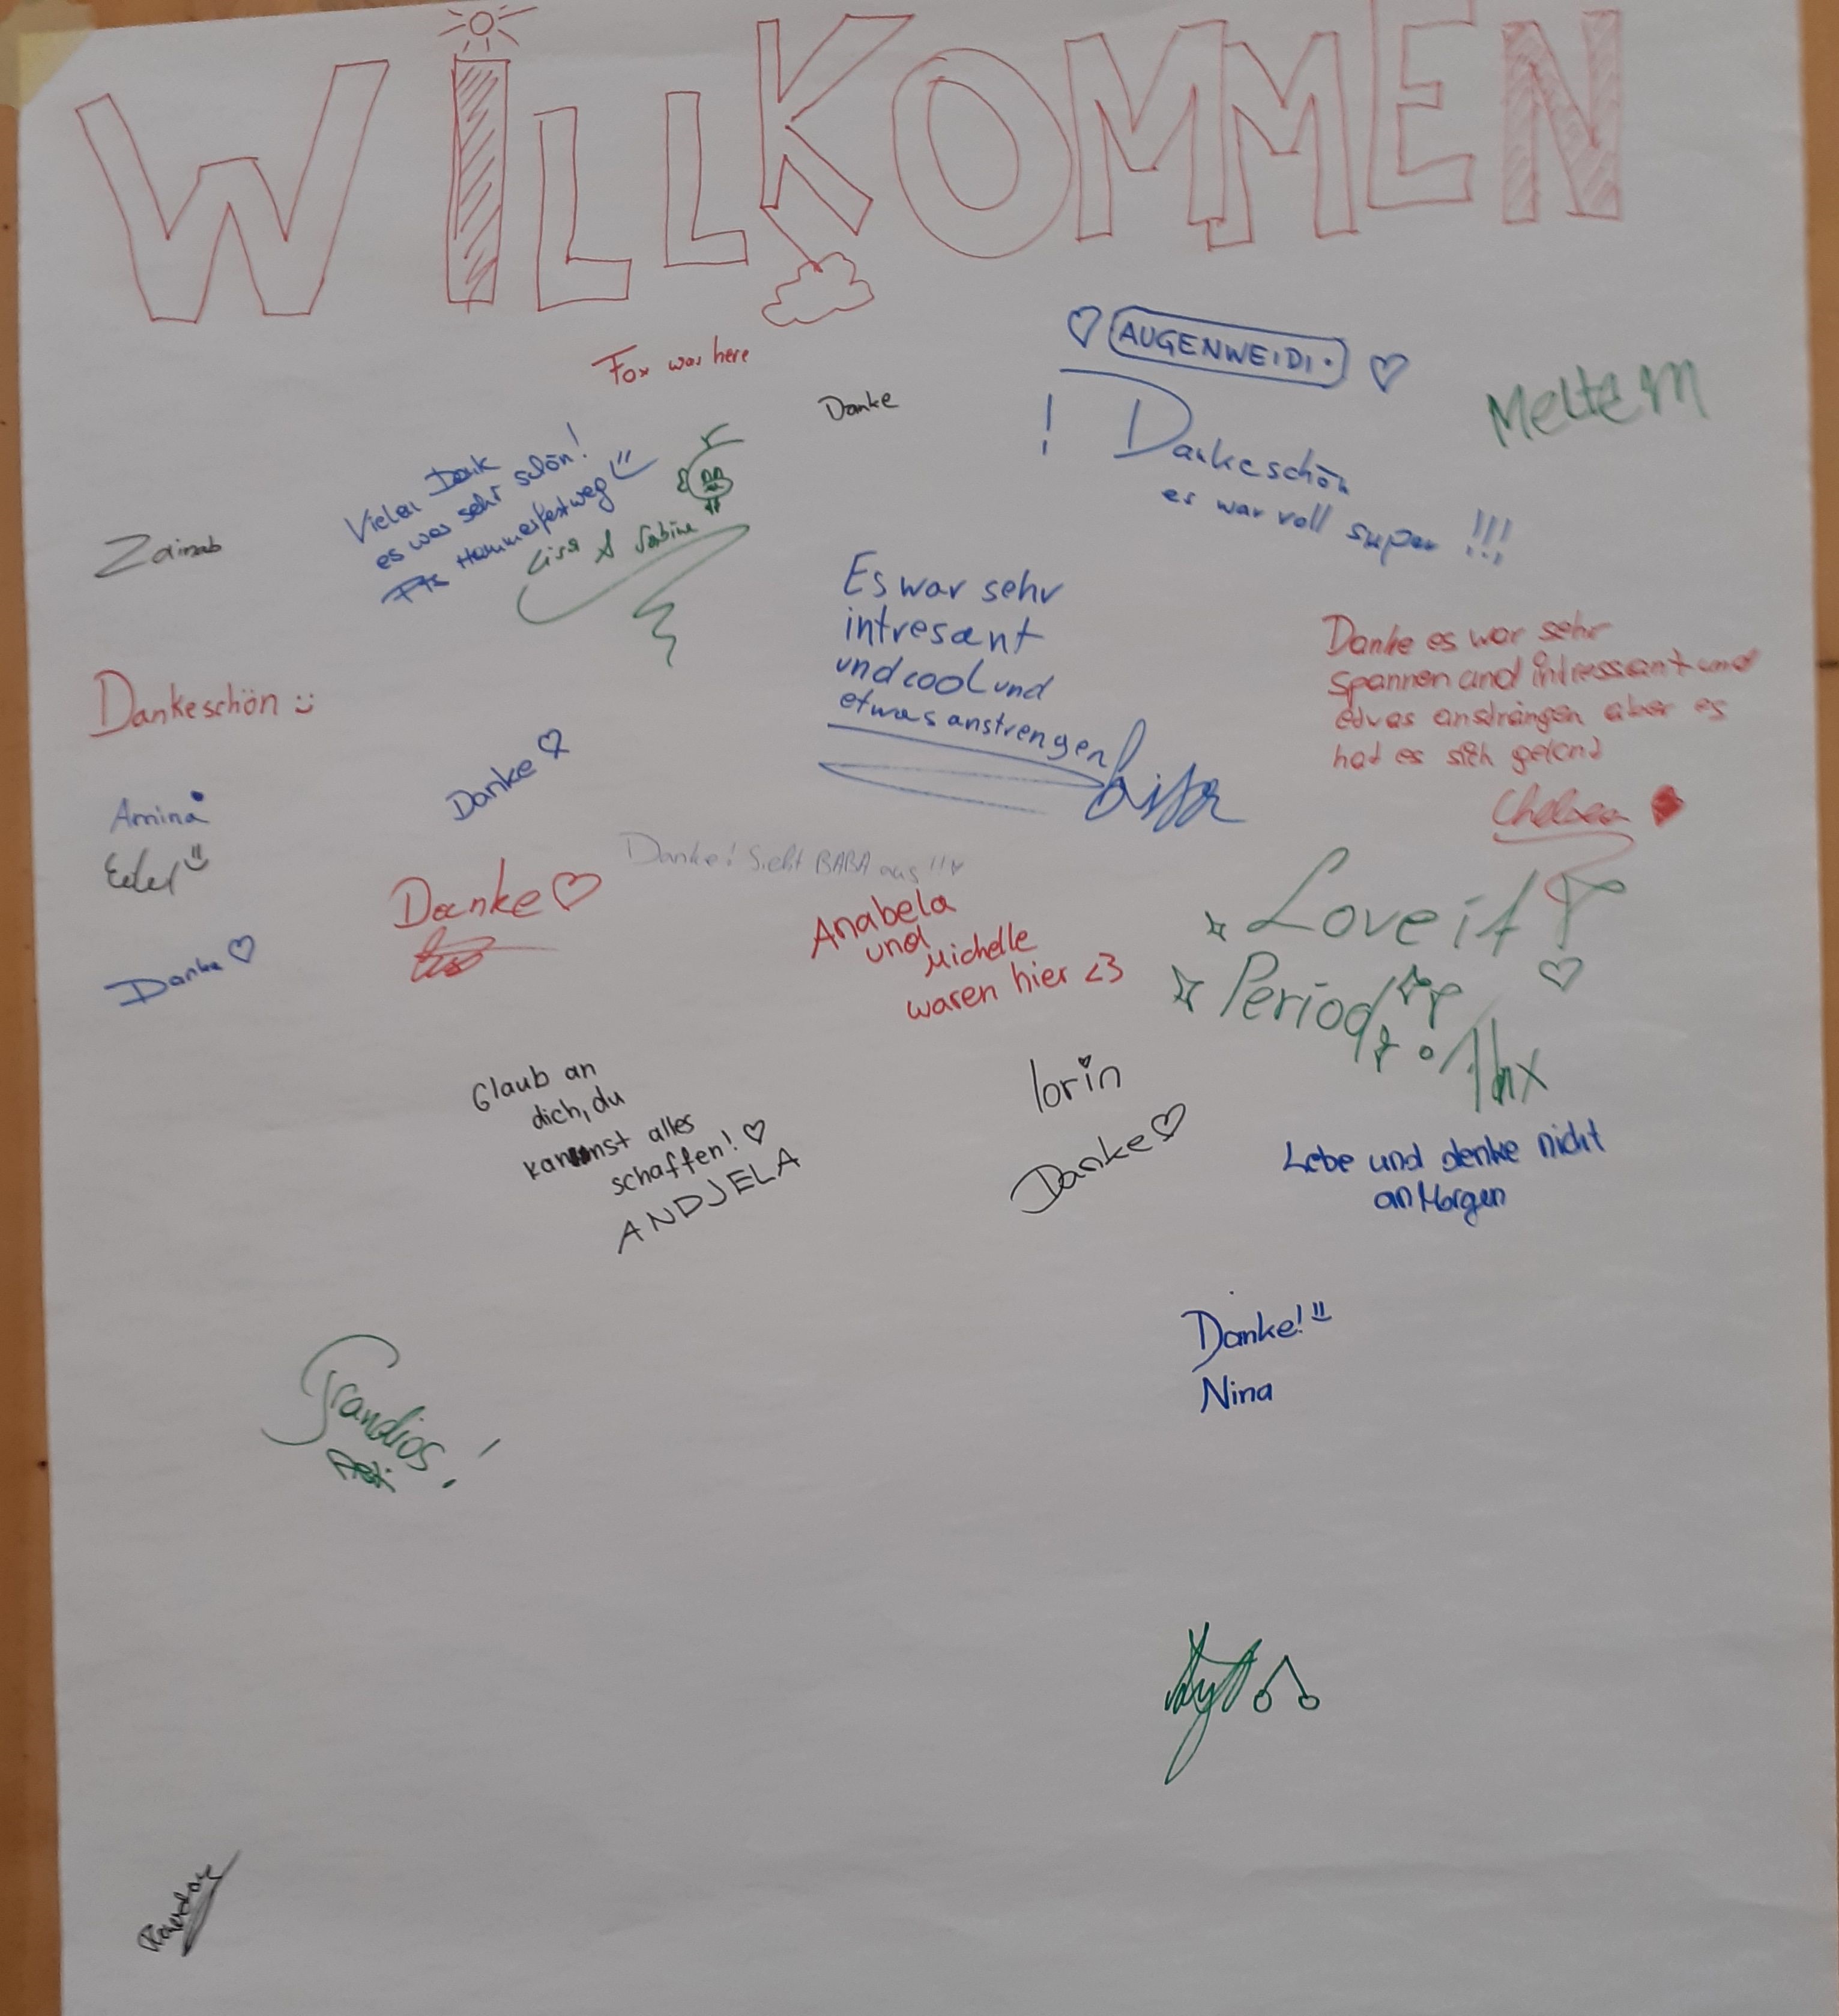 WILLKOMMEN
Fox was here
♡ AUGENWEIDI. ♡
Danke
Meltem
! Dankeschön
es war voll super !!!
Vielen Dank
es war sehr schön!
Hammerfestweg
Lisa & Sabine
Zainab
Es war sehr
intresant
und cool und
etwas anstrengen
Danke es war sehr
spannen and intressant und
etwas anstrángen aber es
hat es sich gelond
Chelsea
Dankeschön :)
Danke ♡
Amina
Danke! Sieht BABA aus !!
Danke ♡
Anabela
und
Michelle
waren hier <3
Love it
Period
Danke ♡
Glaub an
dich, du
kannst alles
schaffen! ♡
ANDJELA
lorin
Danke ♡
Lebe und denke nicht
an Morgen
Danke!
Nina
Grandios!